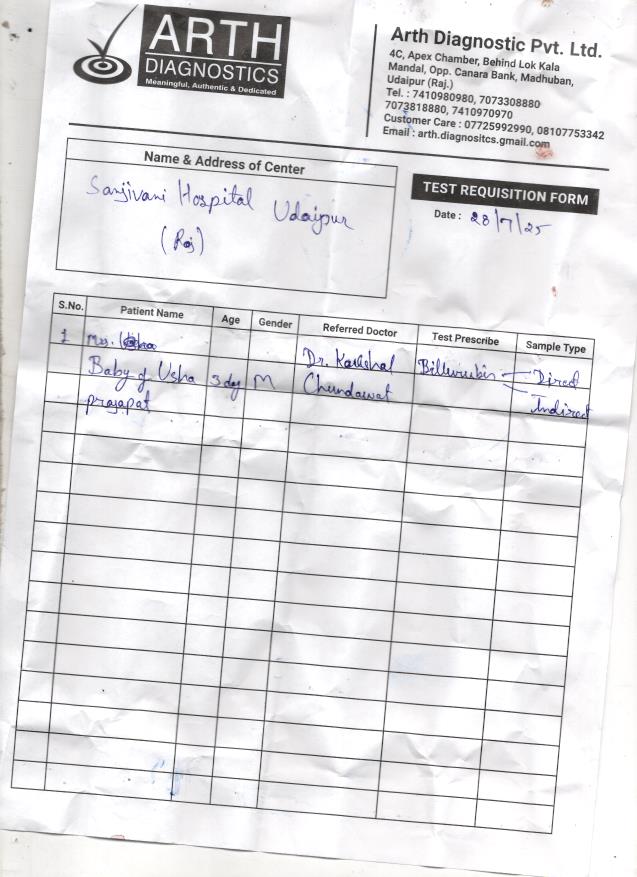 ARTH
DIAGNOSTICS
Meaningful, Authentic & Dedicated
Arth Diagnostic Pvt. Ltd.
4C, Apex Chamber, Behind Lok Kala
Mandal, Opp. Canara Bank, Madhuban,
Udaipur (Raj.)
Tel. : 7410980980, 7073308880
7073818880, 7410970970
Customer Care : 07725992990, 08107753342
Email : arth.diagnositcs.gmail.com
Name & Address of Center
Sanjivani Hospital Udaipur
(Raj)
TEST REQUISITION FORM
Date : 28/7/25
S.No. Patient Name Age Gender Referred Doctor Test Prescribe Sample Type
1 Mrs.
Baby of Usha 3 day M Dr. Kaushal Billurubin Direct
prajapat Chundawat Indirect